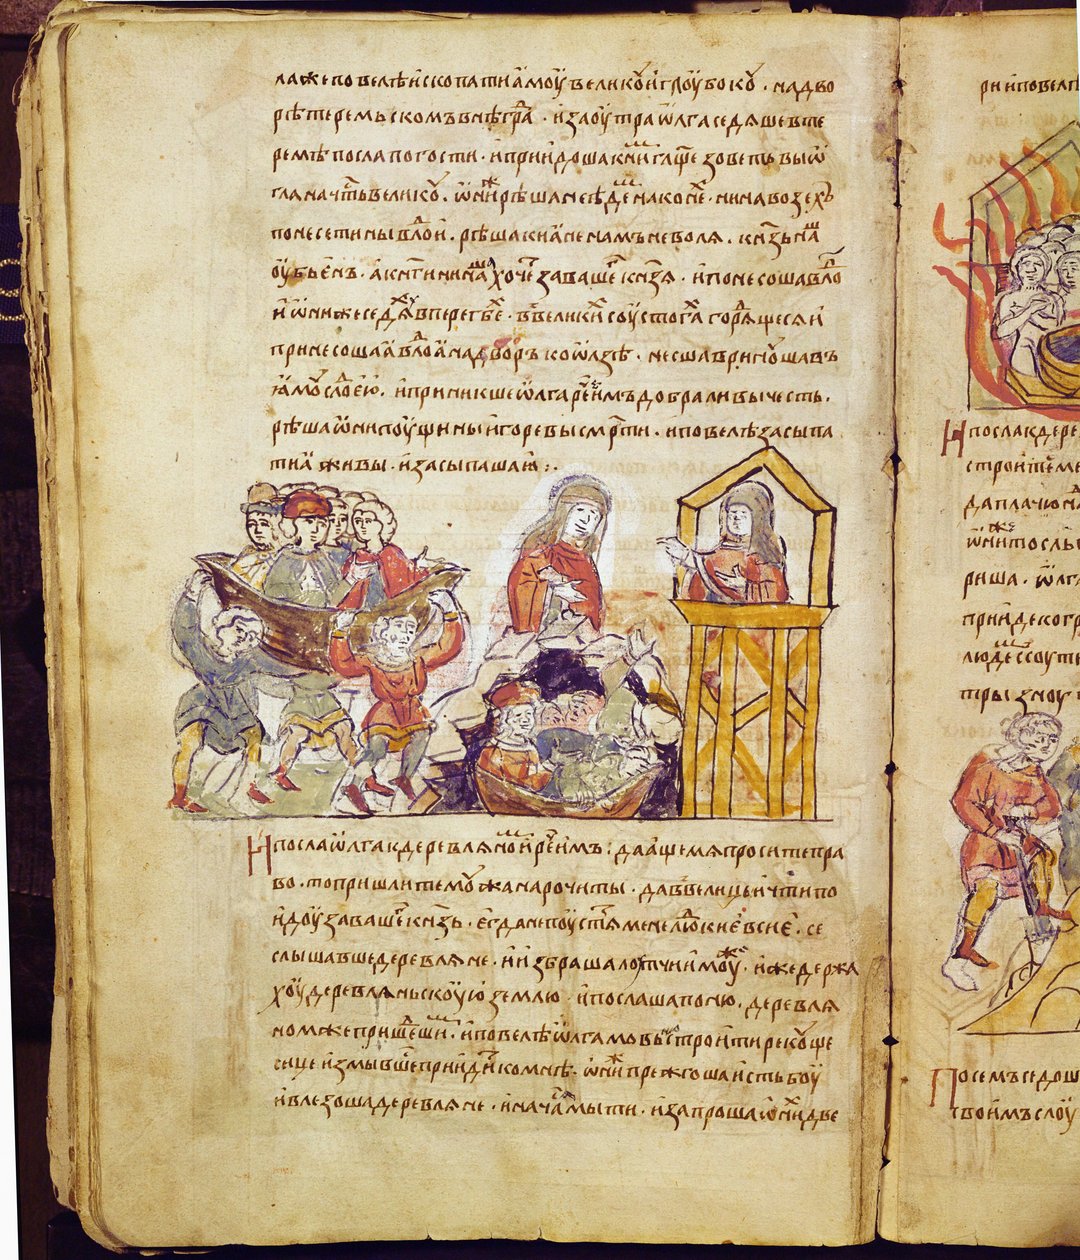 лаже повелѣ ископати ꙗмоу великоу и глоубокоу · на дво
рѣ теремьскомъ внѣ гра · и заоутра ѡлга седѧше в те
ремѣ посла по гости · и приидоша к ни гл҃ще зоветь вы ѡ
лга на чть великоу · ѡни рѣша не еде на коне · ни на возехъ
понесети ны в лои · рѣша киꙗне намъ неволѧ · кнзь нш
оубьенъ · а кнгини наша хоче за ваше кнзѧ · и понесоша в ло
и ѡни же седѧ в перегбе · въ велики соустога гордѧщесѧ и
принесоша ꙗ в ло ꙗ на дворъ ко ѡлзѣ · несша вриноуша въ
ꙗмоу с лоею · и приникши ѡлга рече имъ добра ли вы честь ·
рѣша ѡни поуще ны игоревы смрти · и повелѣ засыпа
ти ꙗ живы · и засыпаша ю :·
И посла ѡлга к деревлѧно и рече имъ : да аще мѧ просите пра
во · то пришлите моужа нарочиты · да в велице и чти по
идоу за ваше кнзь · егда не поустѧ мене лю киевсие · се
слышавше деревлѧне · и избраша лоутчии моу · иже держа
хоу деревлѧньскоую землю · и послаша по ню · деревлѧ
но же пришеши · и повелѣ ѡлга мовь строити рекоуще
сице измывшесѧ приидити ко мнѣ · ѡни же прежгоша истьбоу
и влезоша деревлѧне · и нача мыти · и запроша ѡ ни две
ри и повелѣ
И посла к дере
строите ме
да плачюсѧ на
ѡни то слы
риша · ѡлга
прииде ко гро
люде съсоути
тры
Посемъ седоша
твоимъ слоу